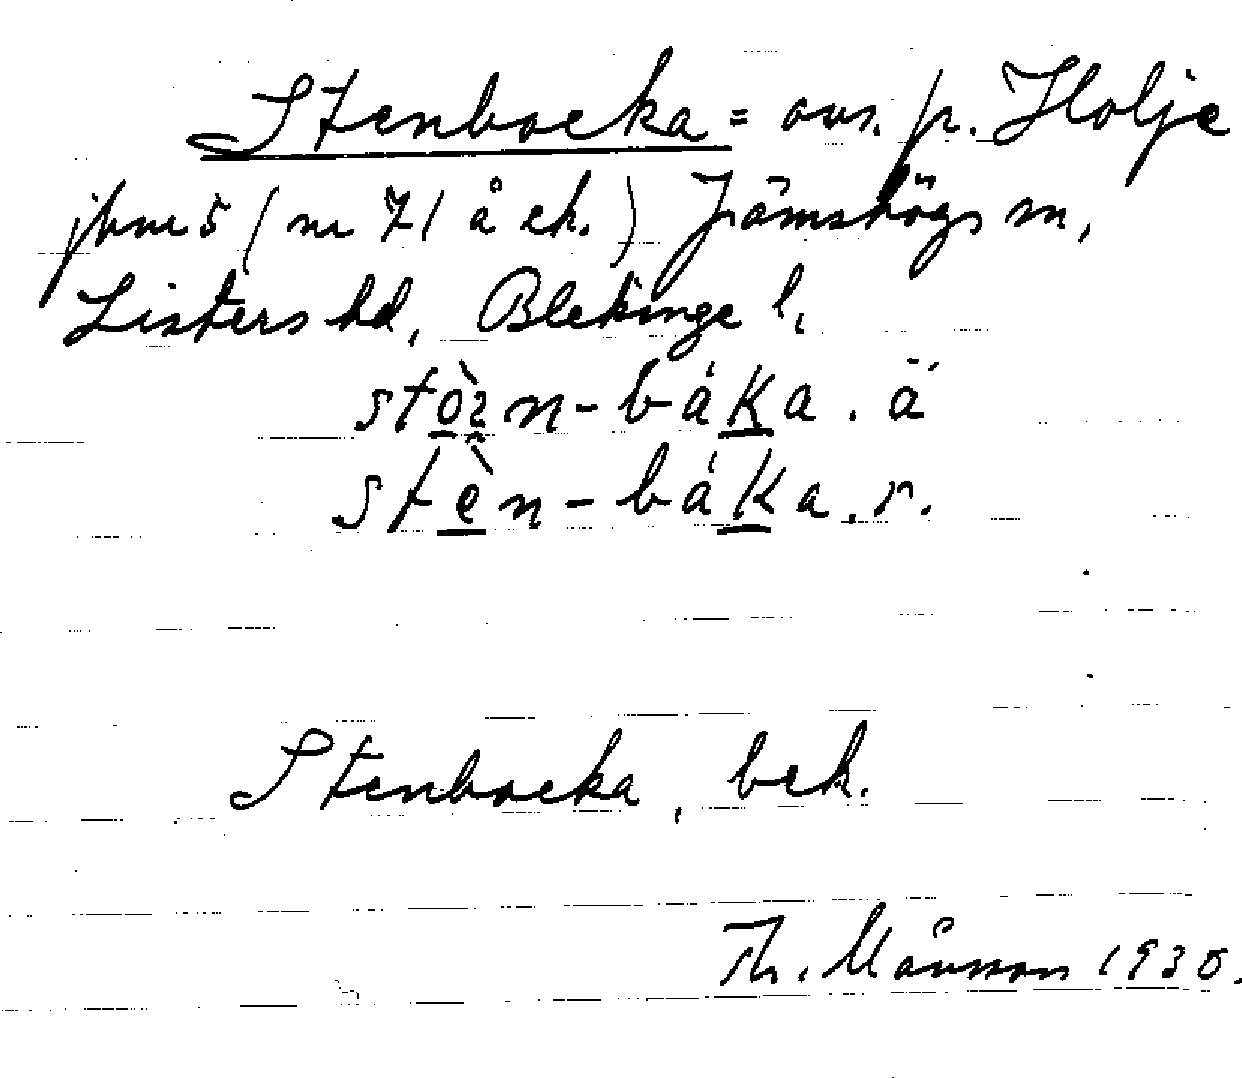 Stenbocka = avs. p. Holje
jbruk5 (nr 71 å ek.) Jämshögs sn,
Listers hd, Blekinge l.
stò̱ꝛn-båḵa. ä
stè̱n-båḵa. r.
Stenbocka, bek.
Th. Månsson 1930.